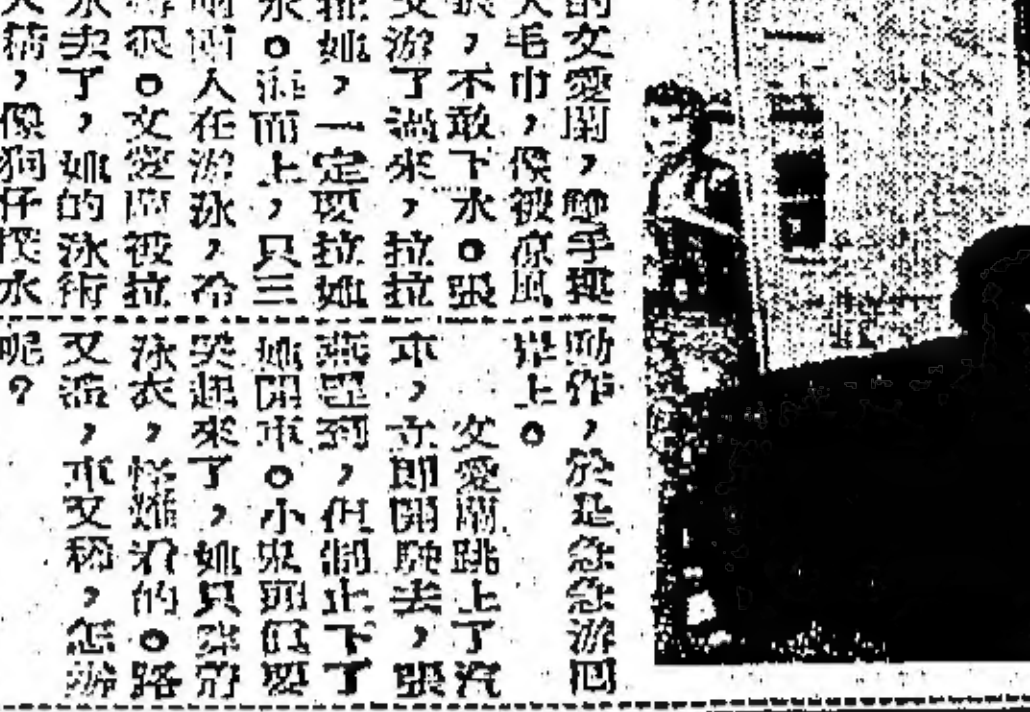 的文愛蘭，雙手
大毛巾，像被涼風
，不敢下水。張
文游了過來，拉拉
她，一定要拉她
水。面上，只三
兩人在游泳，冷
得很。文愛蘭被拉
水去了，她的泳術
精，像狗仔撲水
動作，於是急急游回
岸上。
文愛蘭跳上了汽
車，立即開駛去，張
燕到，但制止下了
她開車。小要
哭起來了，她只穿
泳衣，怪難的。路
又，車又稀，怎辦
呢？